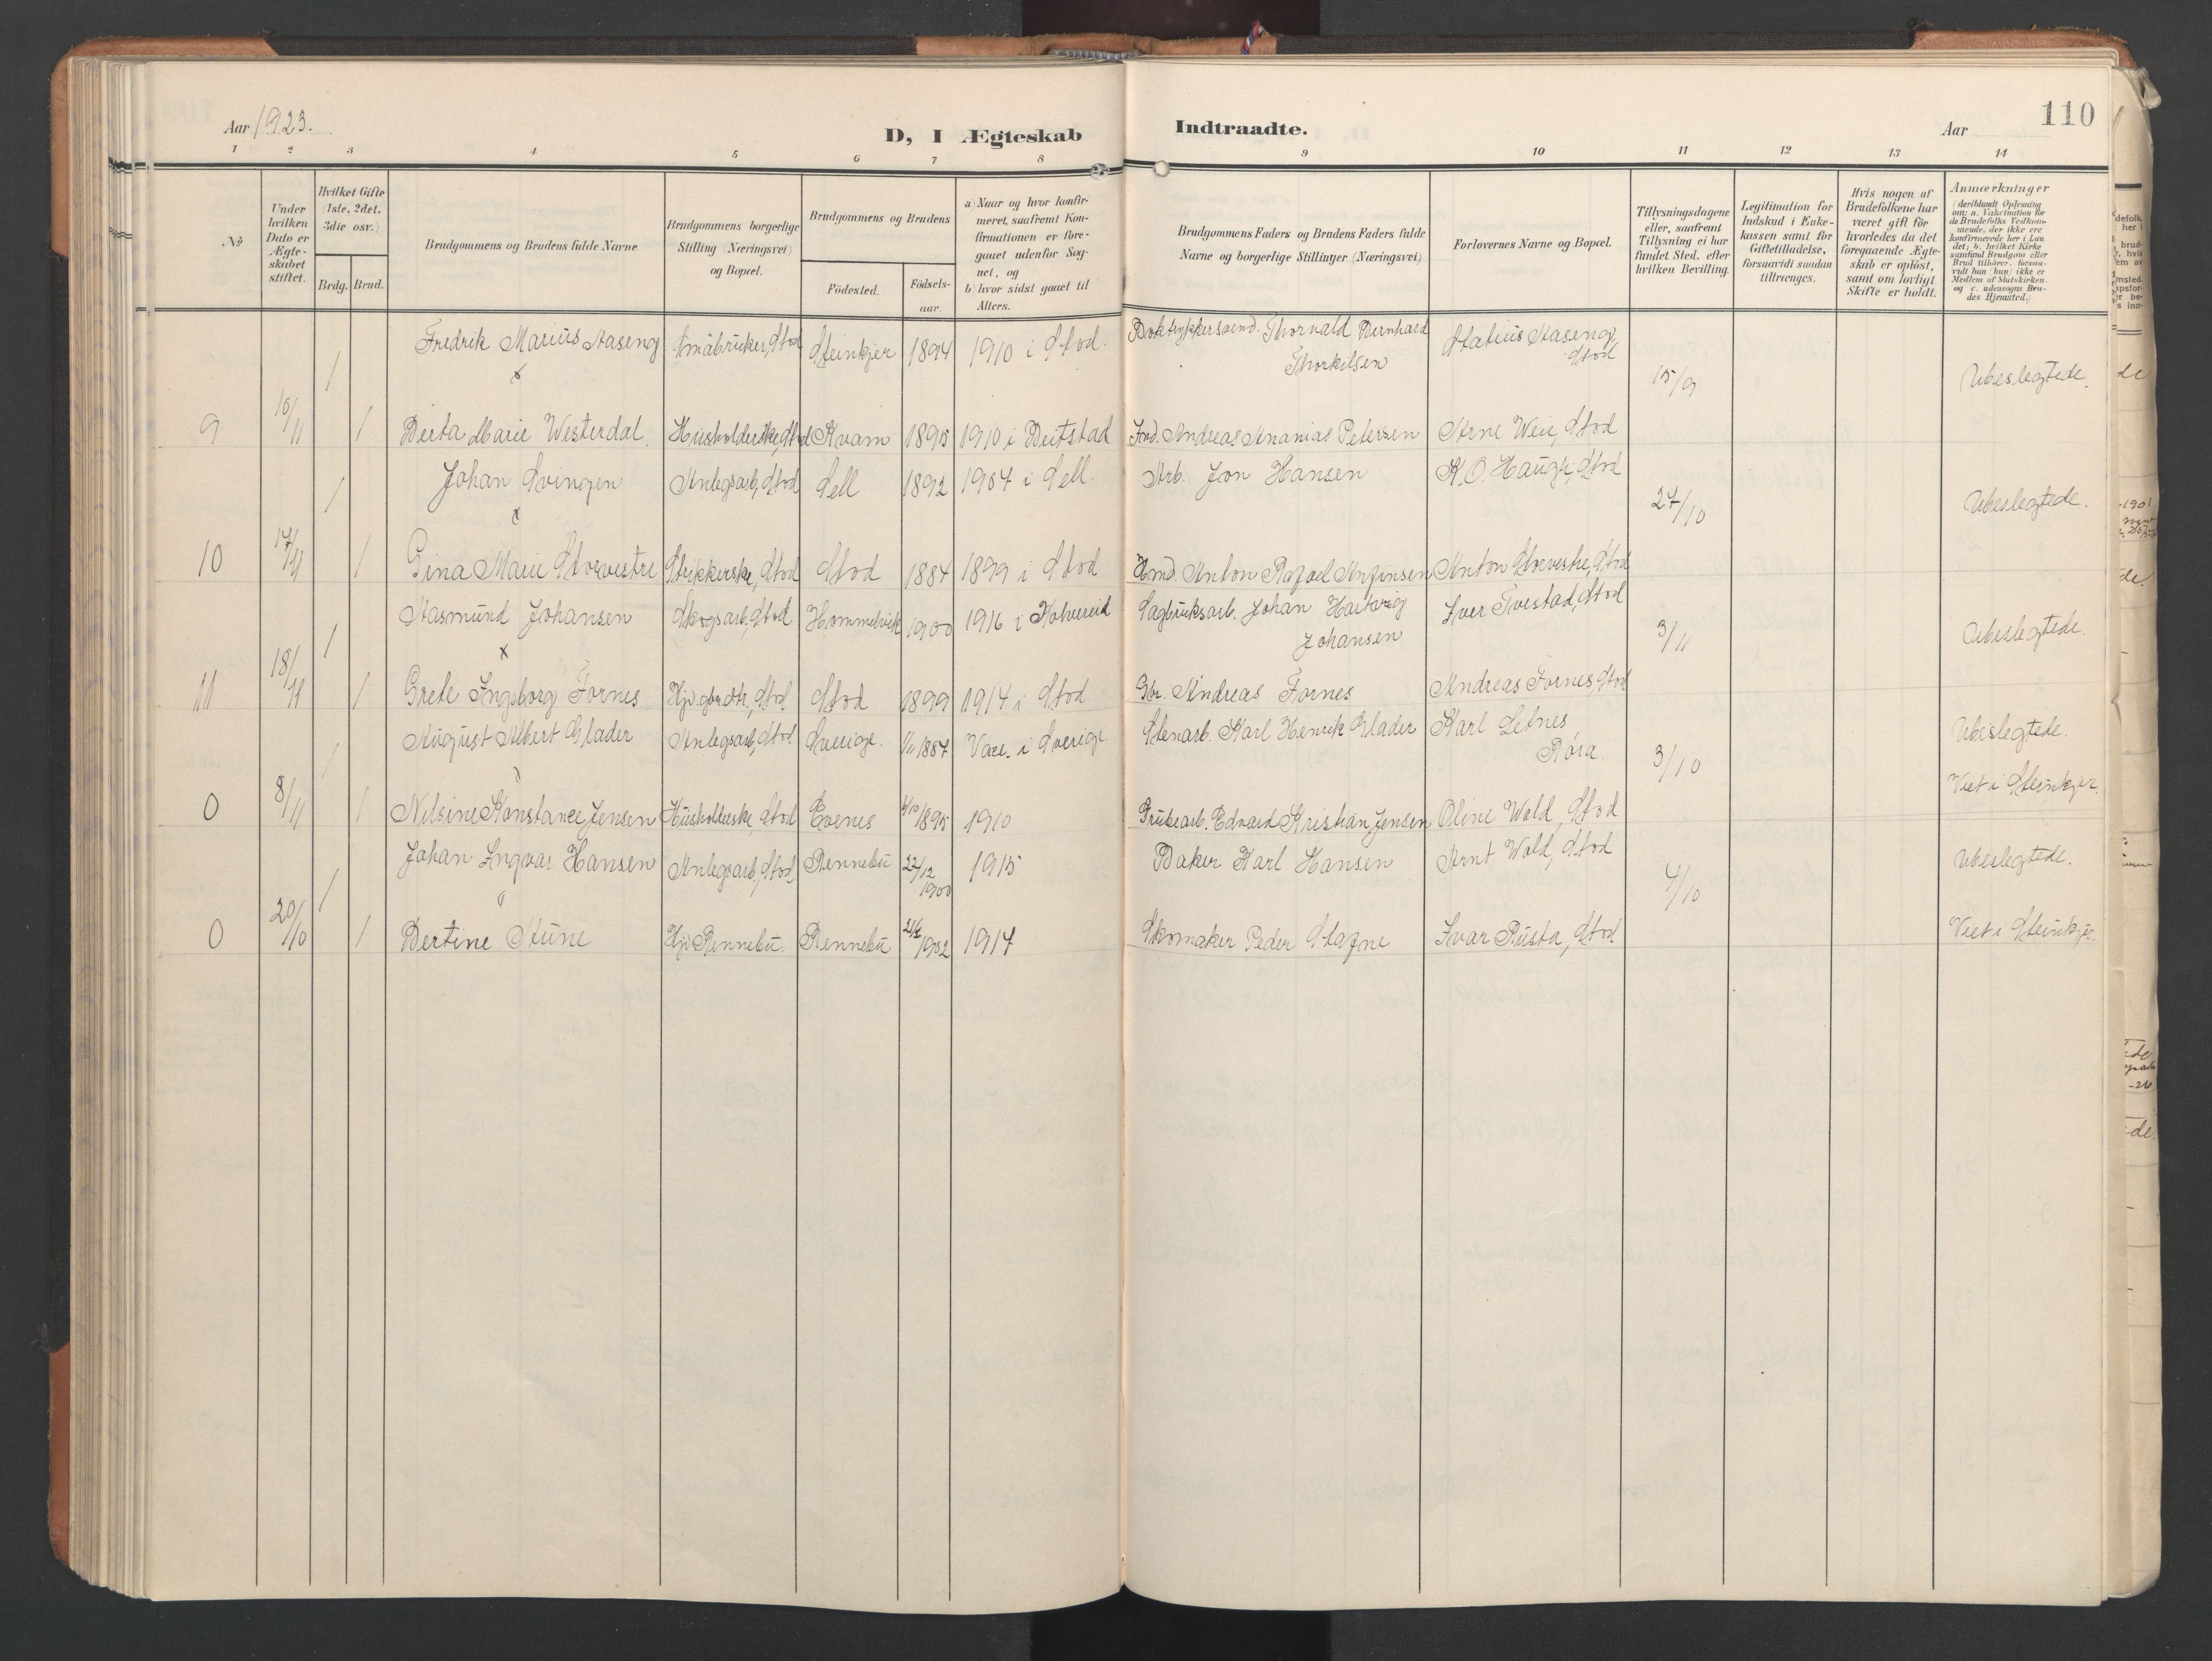 Aar 1923.
D, I Ægteskab
Indtraadte.
Aar
110
1 2 3 4 5 6 7 8 9 10 11 12 13 14
Nº
Under hvilken Dato er Ægteskabet stiftet.
Hvilket Gifte (1ste, 2det, 3die osv.)
Brdg. Brud.
Brudgommens og Brudens fulde Navne
Brudgommens borgerlige Stilling (Næringsvei) og Bopæl.
Brudgommens og Brudens
Födested.
Födselsaar.
a) Naar og hvor konfirmeret, saafremt Konfirmationen er foregaaet udenfor Sognet, og
b) hvor sidst gaaet til Alters.
Brudgommens Faders og Brudens Faders fulde Navne og borgerlige Stillinger (Næringsvei)
Forlovernes Navne og Bopæl.
Tillysningsdagene eller, saafremt Tillysning ei har fundet Sted, efter hvilken Bevilling.
Legitimation for Indskud i Enkekassen samt for Giftetilladelse, forsaavidt saadan tiltrænges.
Hvis nogen af Brudefolkene har været gift för hvorledes da det foregaaende Ægteskab er oplöst, samt om lovligt Skifte er holdt.
Anmærkninger (deriblandt Oplysning om: a. Vakcination for de Brudefolks Vedkommende, der ikke ere konfirmerede her i Landet; b. hvilket Kirkesamfund Brudgom eller Brud tilhörer, forsaavidt han (hun) ikke er Medlem af Statskirken, og c. udensogns Brudes Hjemsted.)
1 Fredrik Marius Aaseng Småbruker, Stod Steinkjer 1894 1910 i Stod. Boktrykkersvend. Thorvald Bernhard Thorkilsen Statius Aaseng, Stod 15/9 Ubeslegtede.
9 1 Berta Marie Westerdal. Husholderske, Stod Kvam 1895 1910 i Beitstad Ind. Andreas Ananias Petersen Arne Weie, Stod
1 Johan Svingen Anlegsarb, Stod Sell 1892 1907 i Sell. Arb. Jon Hansen K. O. Haugli, Stod 27/10 Ubeslegtede.
10 17/11 1 Gina Marie Storvestre Strikkerske, Stod Stod 1884 1899 i Stod Hmd. Anton Rafael Anfinsen Anton Storvestre, Stod
1 Aasmund Johansen Skogsarb, Stod Hommelvik 1900 1916 i Kolvereid Sagbruksarb. Johan Hartvig Johansen Iver Tvestad, Stod 3/11 Ubeslegtede.
11 18/11 1 Grete Ingeborg Fornes Hjv. gbr.dtr., Stod Stod 1899 1914 i Stod Gbr. Andreas Fornes Andreas Fornes, Stod
1 August Albert Glader Anlegsarb, Stod Sverige. 1/11 1887 i Sverige Stenarb. Karl Henrik Glader Karl Letnes Røra. 3/10 Ubeslegtede.
0 8/11 1 Nilsine Konstanee Jensen Husholderske, Stod Evenes 1895 1910 Grubearb. Edvard Kristian Jensen Oline Wold, Stod Viet i Steinkjer.
1 Johan Ingvar Hansen Anlegsarb, Stod, Rennebu 22/12 1900 1915 Baker Karl Hansen Arnt Wold, Stod 4/10 Ubeslegtede.
0 20/10 1 Bertine Stüne Hjv. Rennebu. Rennebu 1902 1917 Skomaker Peder Stafne Ivar Rusta, Stod Viet i Steinkjer.